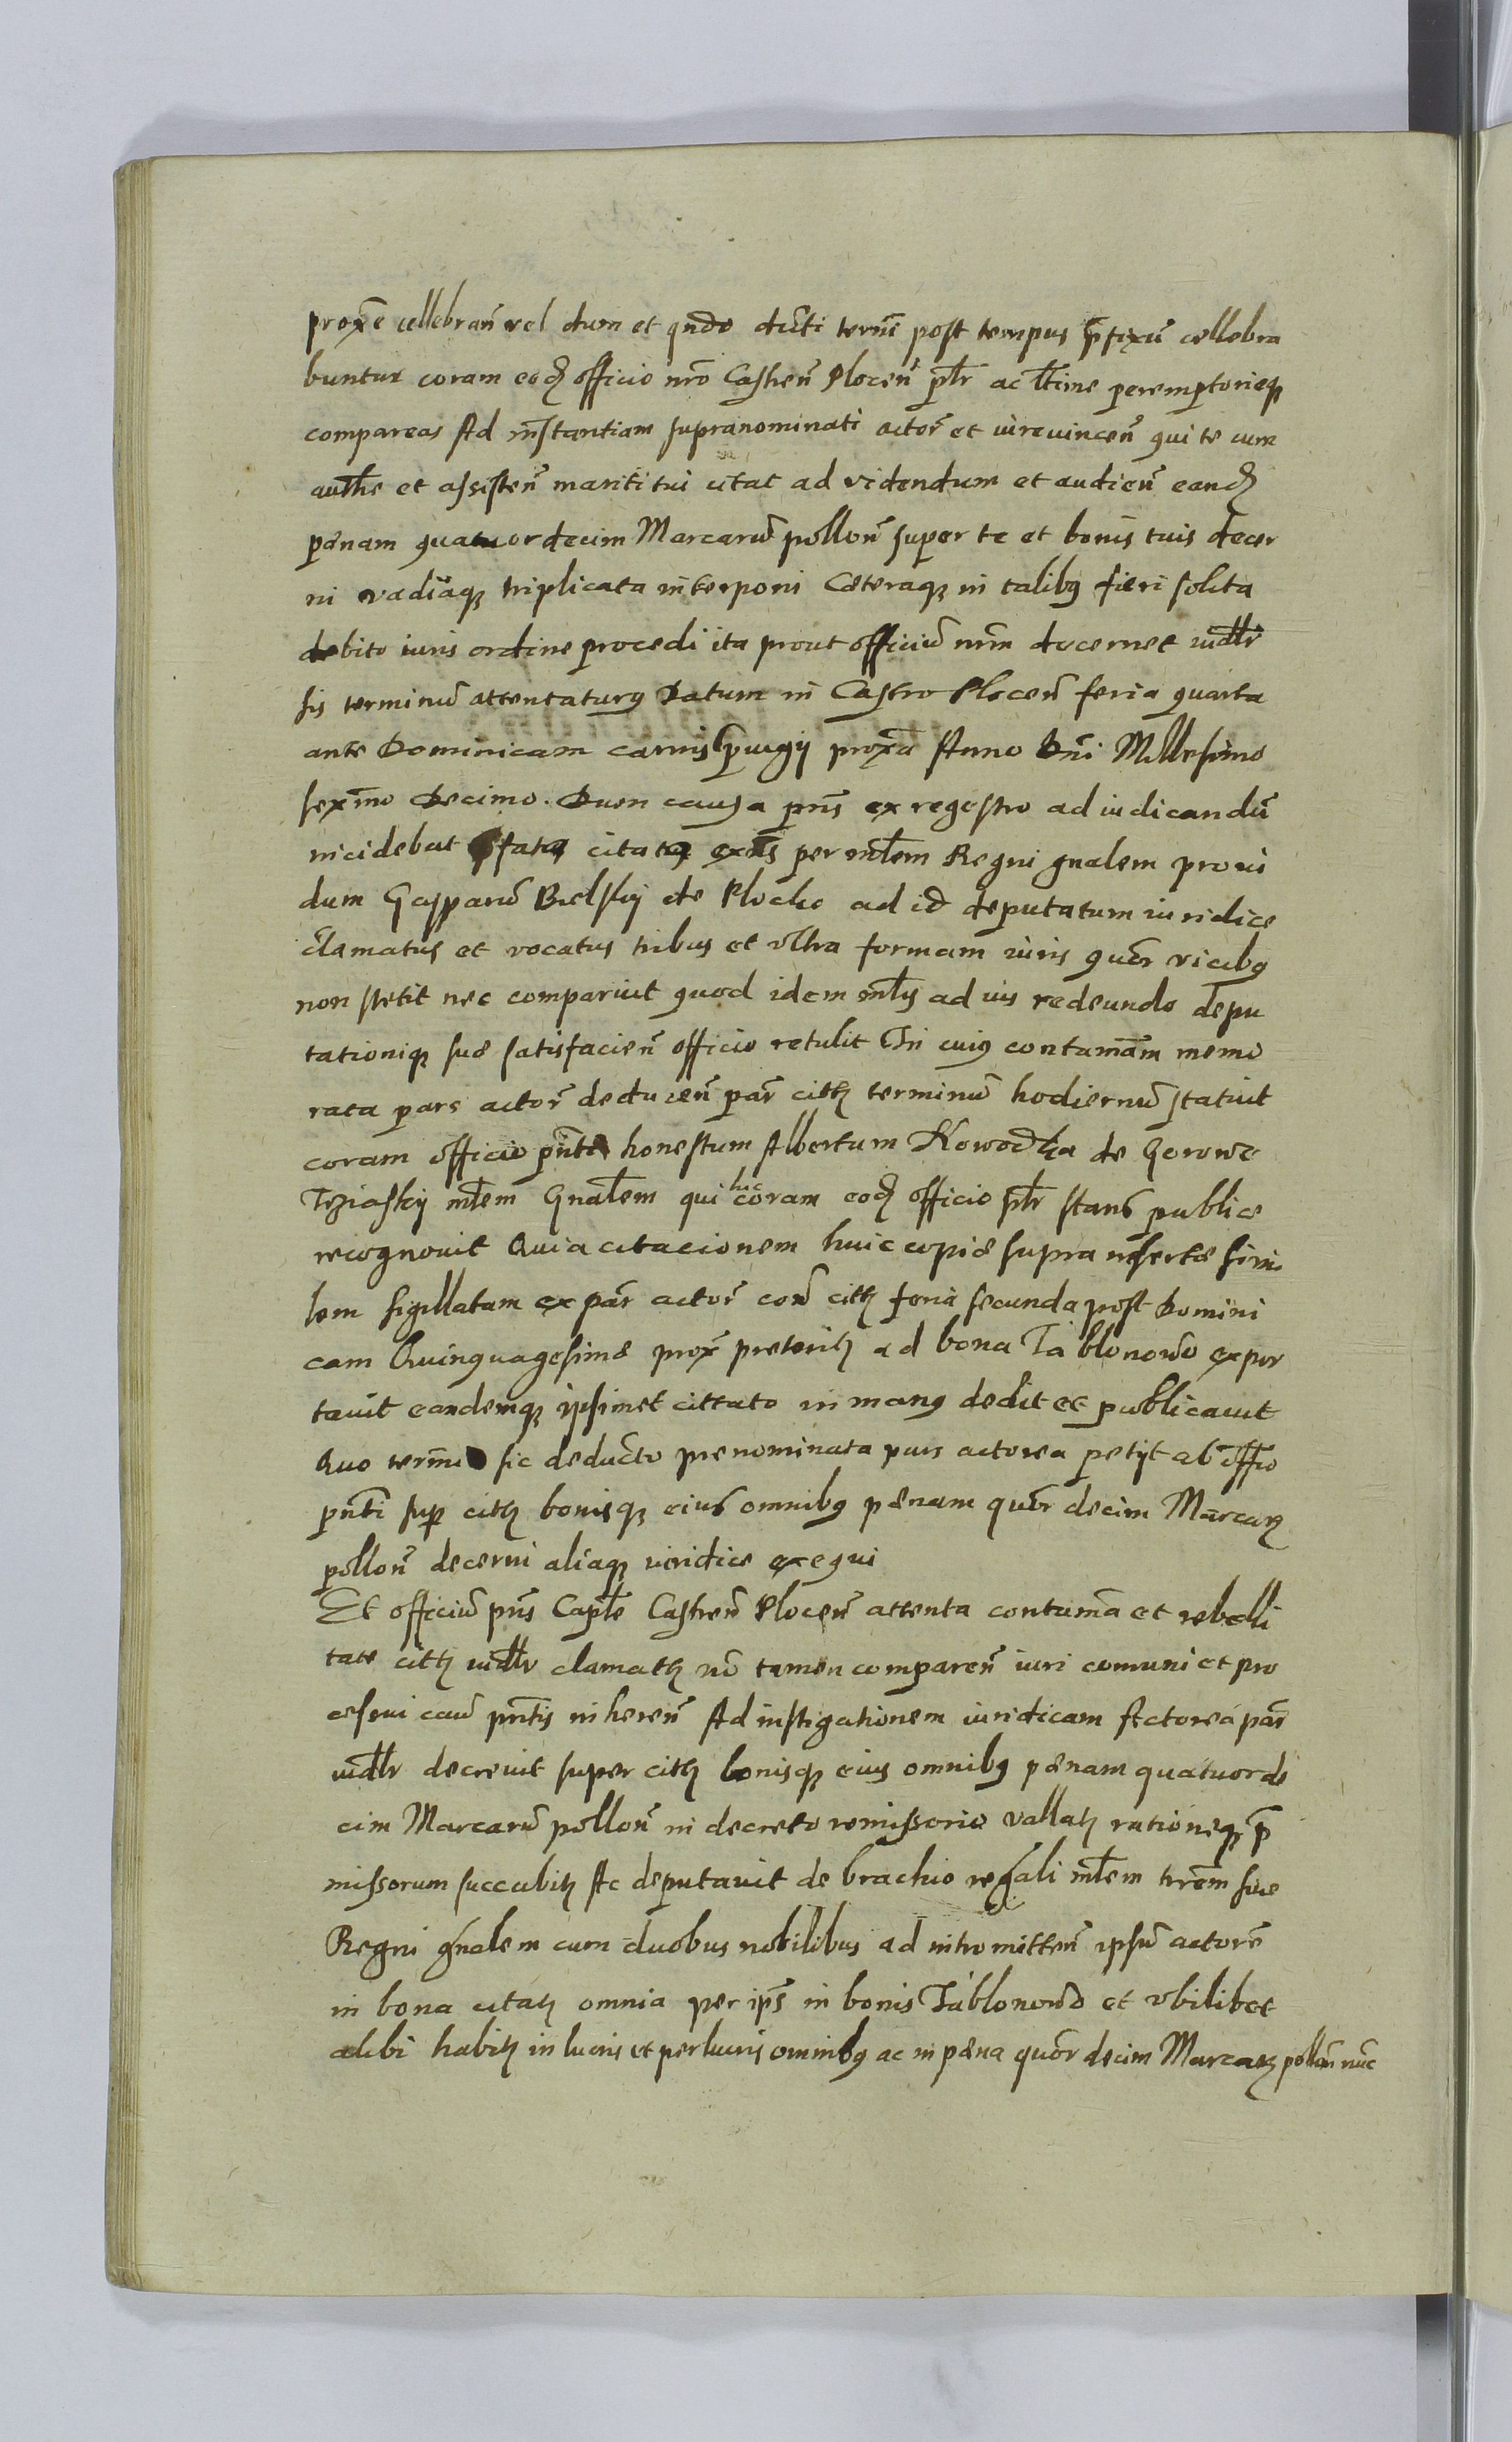 proxe cellebran vel dum et qndo dicti termi post tempus pfixu cellebra
buntur coram eod officio nro Castren Plocen plr ac ltime peremptorieq
compareas Ad instantiam supranominati actor et iurevincen qui te cum
authe et assisten mariti tui citat ad videndum et audien eand
pænam quatuordecim Marcaru pollon super te et bonis tuis decer
ni vadiaq triplicata interponi Cæteraq in talibq fieri solita
debito iuris ordine procedi ita prout officiu nrm decernet iudlr
sis terminu attentaturq Datum in Castro Plocen feria quarta
ante Dominicam carnispruigij proxa Anno Dni Millesimo
sexmo Decimo. Duon causa prns ex regestro ad iudicandu
incidebat pfatq citatq exns per mlem Regni gnalem provi
dum Gasparu Bielskij de Plocko ad id deputatum iuridice
clamatus et vocatus tribus et ultra formam iuris quor vicibq
non stetit nec comparuit quod idem mlis ad ius redeundo depu
tationiq suæ satisfacien officio retulit In cuiq contumam memo
rata pars actor deducen par citt terminu hodiernu statuit
coram officio pnti honestum Albertum Kowodka de Gorowe
Trziaskij mlem Gnalem qui hic coram eod officio plr stans publice
recognovit Quia citacionem huic copiæ supra insertæ simi
lem sigillatam ex par actor con citt feria secunda post Domini
cam Quinquagesimæ prox preterit ad bona Jablonowo expor
tavit eandemq ipsimet cittato in manq dedit et publicavit
Quo termino sic deducto prenominata pars actorea petijt ab offo
pnti sup citt bonisq eius omnibq pænam quor decim Marcar
pollon decerni aliaq iuridice exequi
Et officiu pns Caple Castren Plocen attenta contuma et rebelli
tate citt iudlr clamatt no tamen comparen iuri comuni et pro
cessui cau pntis inheren Ad instigationem iuridicam Actorea par
iudlr decrevit super citt bonisq eius omnibq pænam quatuorde
cim Marcaru pollon in decreto remissorio vallat rationeq p
missorum succubit Ac deputavit de brachio regali mlem trem sive
Regni gnalem cum duobus nobilibus ad intromitten ipsu actore
in bona citat omnia per ips in bonis Jablonowo et ubilibet
alibi habit in lucris et perlucris omnibq ac in pæna quor decim Marcar pollon nunc